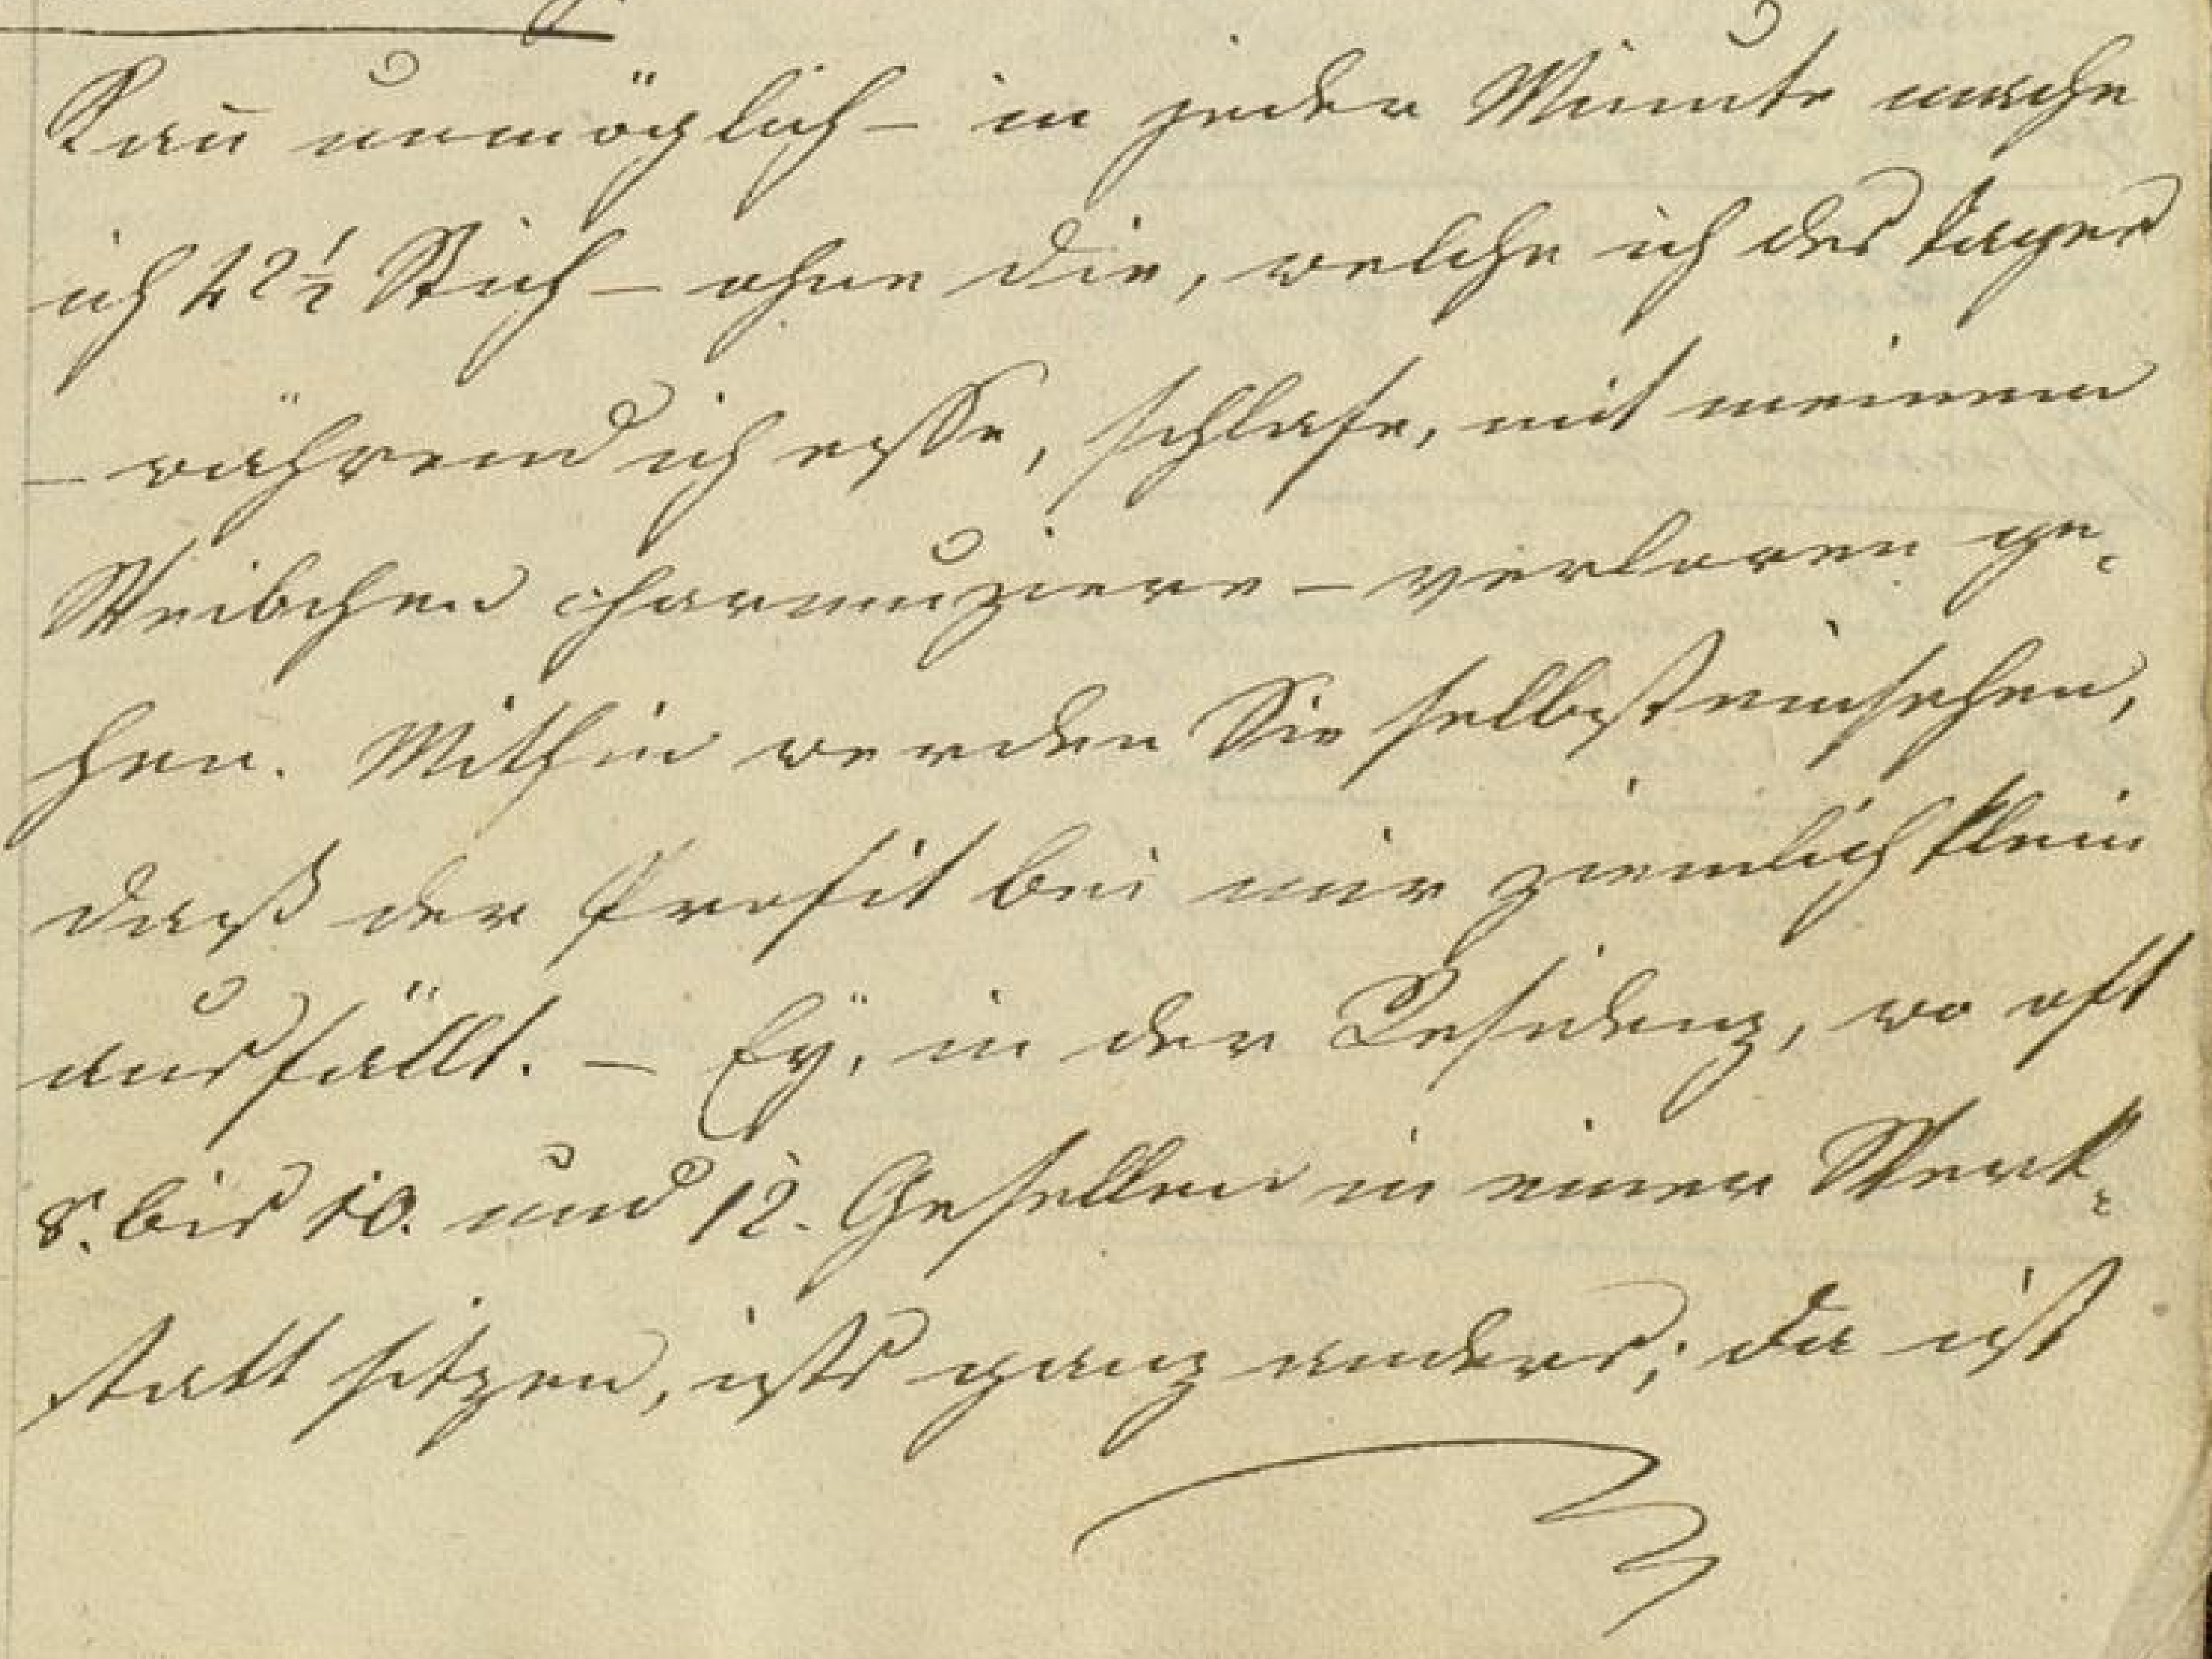 Kan̄ unmöglich – in jeder Minute mache
ich 22½ Stich – ohne die, welche ich des Tages
– während ich esse, schlafe, mit meinem
Weibchen charmuziere – verloren ge-
hen. Mithin werden Sie selbst einsehen,
daß der Profit bei mir ziemlich klein
ausfällt. – Eÿ, in der Residenz, wo oft
8. bis 10. und 12. Gesellen in einer Werk-
statt sitzen, ists ganz anders; da ist